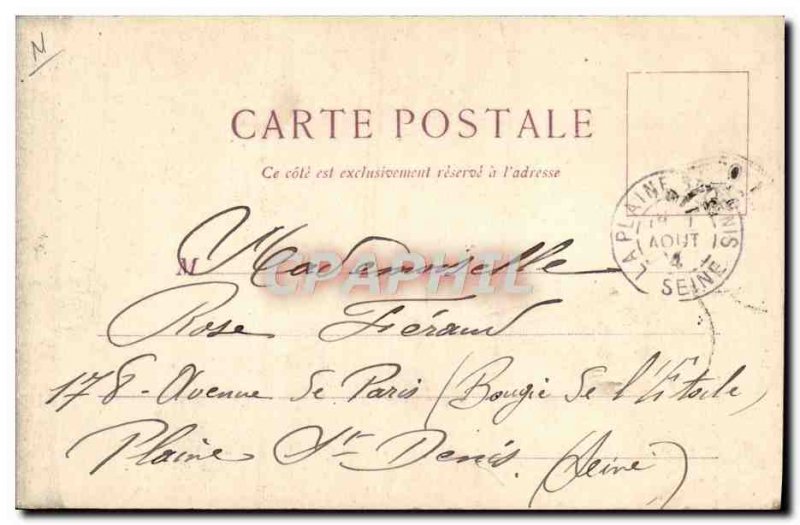 N
CARTE POSTALE
Ce côté est exclusivement réservé à l'adresse
LA PLAINE ST DENIS
AOUT
SEINE
CPAPHIL
M
Mademoiselle
Rose Féraud
178 - Avenue de Paris (Bougie de l'Etoile)
Plaine St- Denis. (Seine)